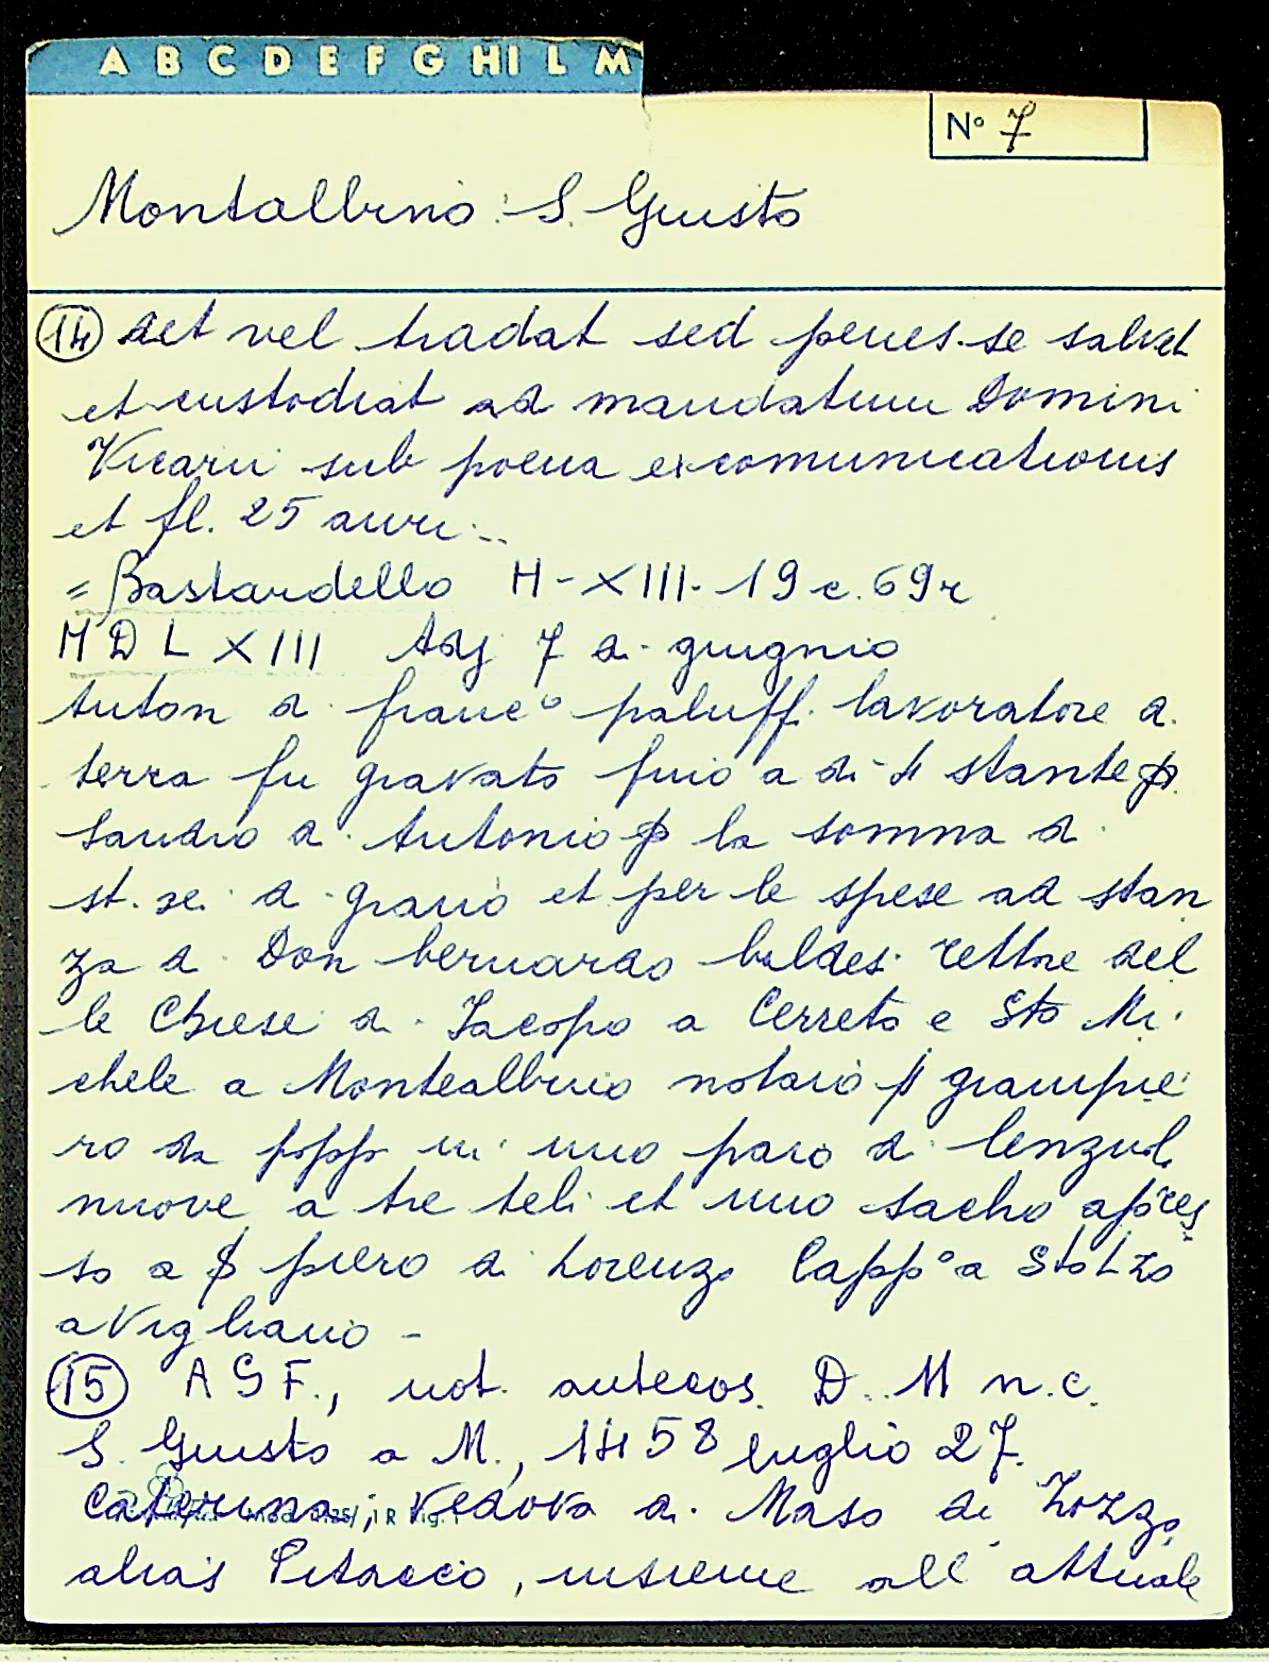 A B C D E F G HI L M
N° 7
Montalbino: S. Giusto
14 det vel tradat sed penes se salvet
et custodiat ad mandatum Domini
Vicarii sub poena excomunicationis
et fl. 25 auri...
= Bastardello H-XIII-19 c. 69r
MDLXIII Adj 7 di giugnio
Anton di franc° paluff. lavoratore di
terra fu gravato fino a di 4 stante p
Sandro di Antonio p la somma di
st. sei di grano et per le spese ad stan
za di Don bernardo baldes. rettore del
le Chiese di Jacopo a Cerreto e Sto Mi
chele a Montealbino notaio giampie
ro da popp in uno paro di lenzuol
nuove a tre teli et uno sacho apres
so a piero di Lorenzo Capp° a Stolzo
a Vigliano -
15 ASF., not. antecos. D. 11 n.c.
S. Giusto a M., 1458 luglio 27.
Caterina, vedova di Maso di Zozzo
alias Pitaccio, insieme all'attuale